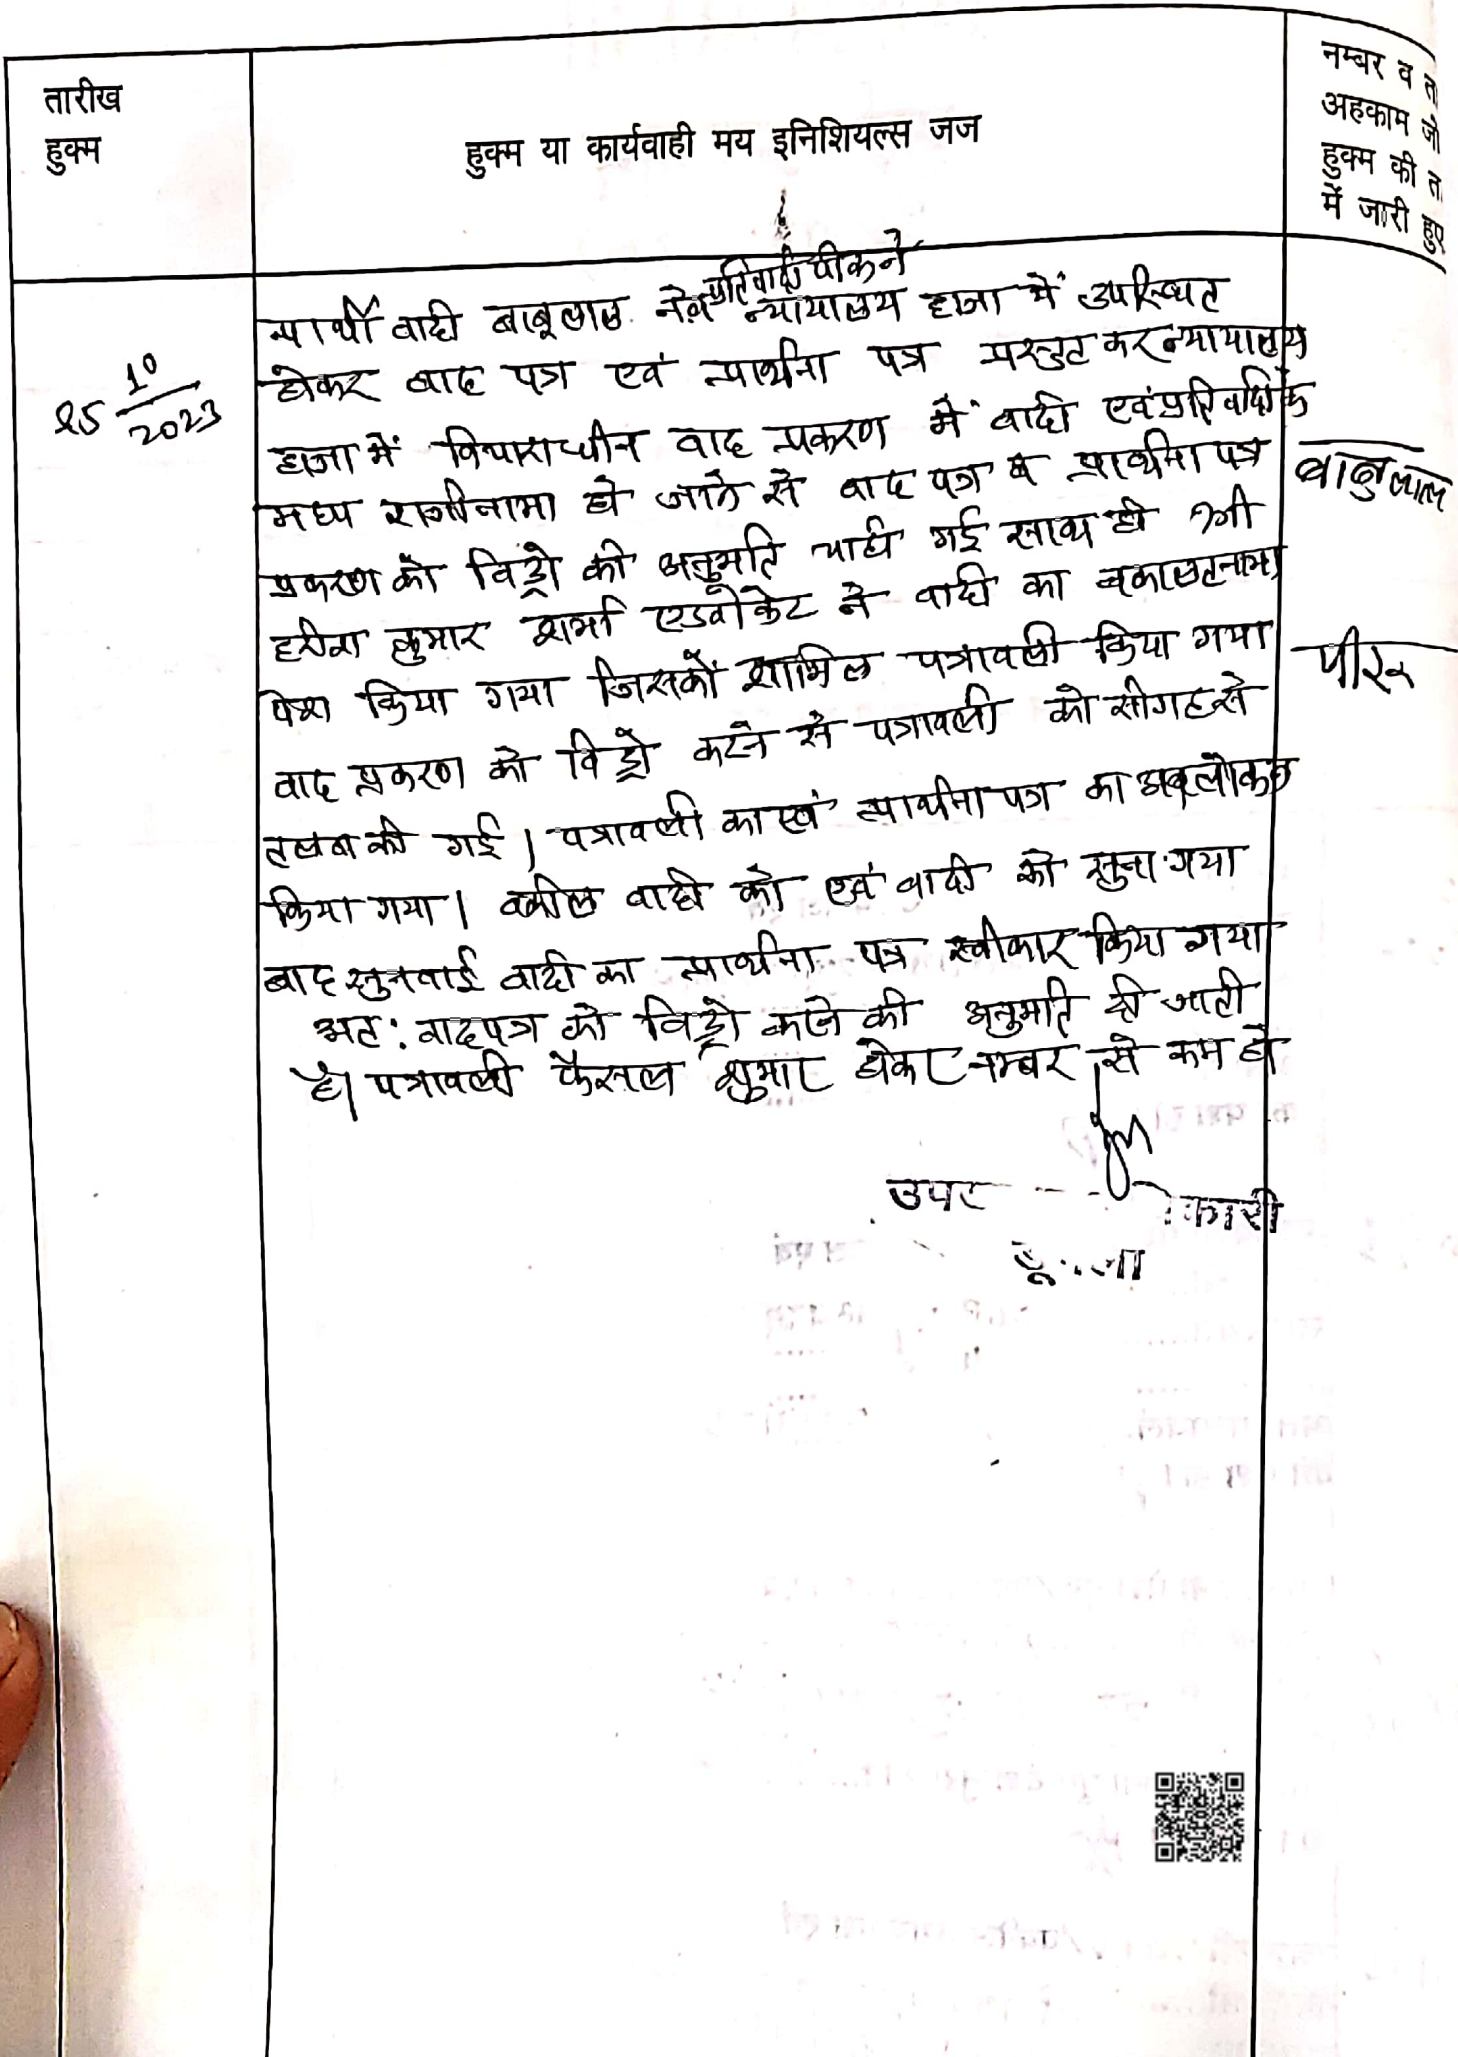 तारीख
हुक्म
हुक्म या कार्यवाही मय इनिशियल्स जज
नम्बर व ता
अहकाम जो
हुक्म की ता
में जारी हुए
25 10/2023
प्रतिवादी पीरू ने
प्रार्थी वादी बाबूलाल ने व न्यायालय हाजा में उपस्थित
होकर वाद पत्र एवं प्रार्थना पत्र प्रस्तुत कर न्यायालय
हाजा में विचाराधीन वाद प्रकरण में वादी एवं प्रतिवादी के
मध्य राजीनामा हो जाने से वाद पत्र व प्रार्थना पत्र
प्रकरण को विड्रो की अनुमति चाही गई साथ ही श्री
हरीश कुमार शर्मा एडवोकेट ने वादी का वकालतनामा
पेश किया गया जिसको शामिल पत्रावली किया गया
वाद प्रकरण को विड्रो करने से पत्रावली को सीगह से
तलब की गई। पत्रावली का एवं प्रार्थना पत्र का अवलोकन
किया गया। वकील वादी को एवं वादी को सुना गया
बाद सुनवाई वादी का प्रार्थना पत्र स्वीकार किया गया
अतः वादपत्र को विड्रो करने की अनुमति दी जाती
है। पत्रावली फैसल शुमार होकर नम्बर से कम हो
बाबुलाल
पीरू